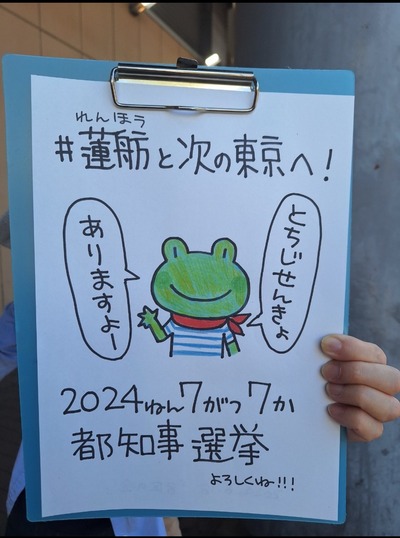 れんほう
#蓮舫と次の東京へ!
とちじせんきょ
ありますよー
2024ねん7がつ7か
都知事選挙
よろしくね!!!